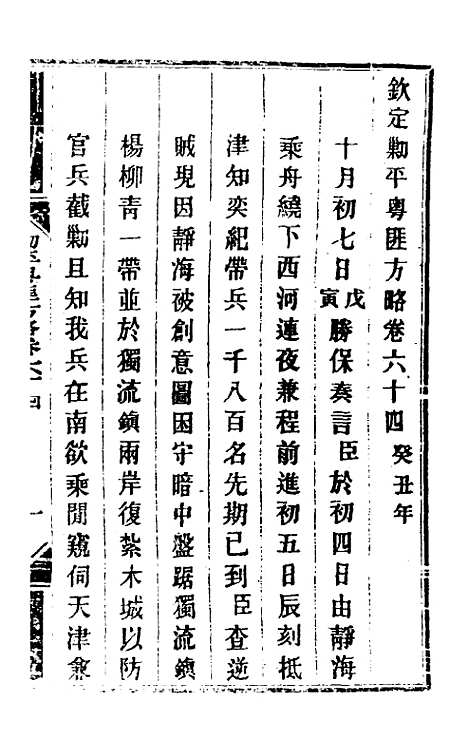 欽定勦平粵匪方略卷六十四 癸丑年
十月初七日戊寅勝保奏言臣於初四日由靜海
乘舟繞下西河連夜兼程前進初五日辰刻抵
津知奕紀帶兵一千八百名先期已到臣查逆
賊現因靜海被創意圖困守暗中盤踞獨流鎮
楊柳青一帶並於獨流鎮兩岸復紮木城以防
官兵截勦且知我兵在南欲乘間窺伺天津兼